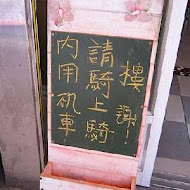 內用机車
請騎上騎
樓 謝!